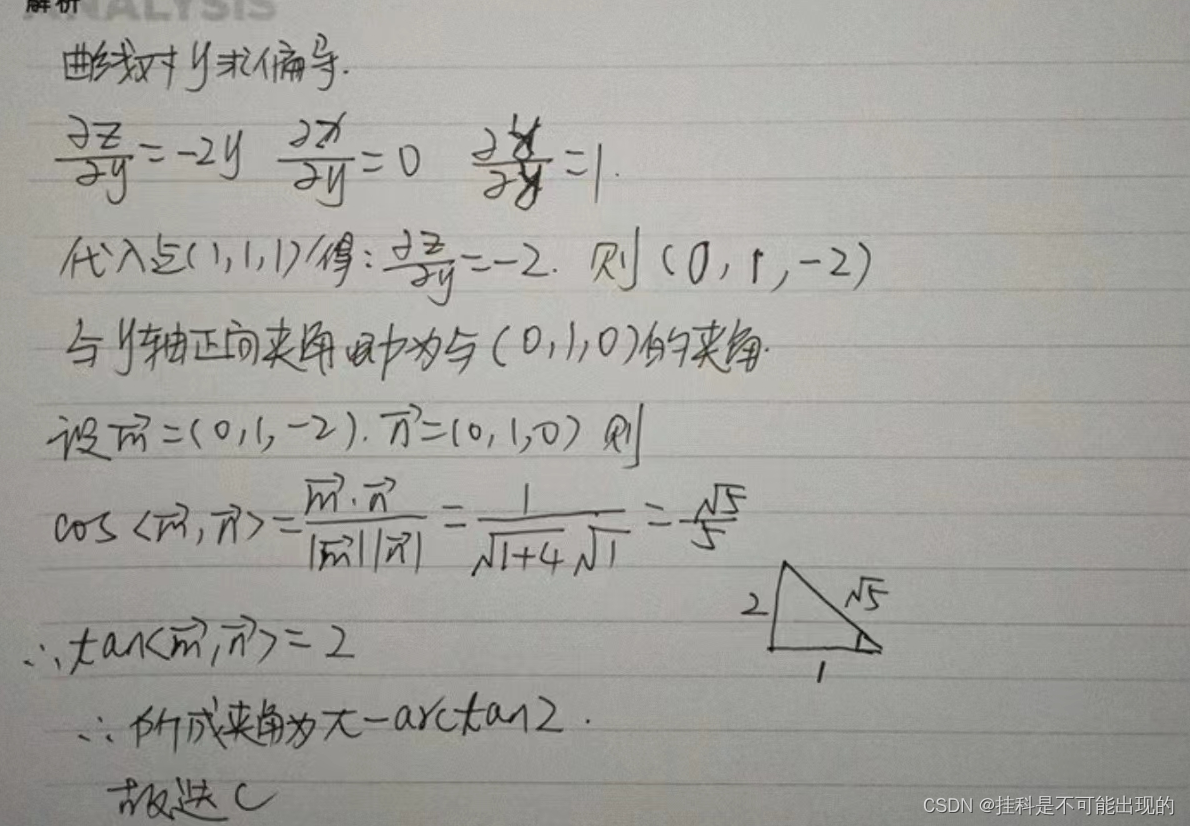 解析
ANALYSIS
曲线对y求偏导.
∂z/∂y=-2y ∂x/∂y=0 ∂y/∂y=1.
代入点(1,1,1)得:∂z/∂y=-2. 则(0,1,-2)
与y轴正向夹角即为与(0,1,0)的夹角.
设m⃗=(0,1,-2). n⃗=(0,1,0) 则
cos<m⃗,n⃗>=m⃗·n⃗/|m⃗||n⃗|=1/√1+4√1=√5/5
2 √5
1
∴tan<m⃗,n⃗>=2
∴所成夹角为π-arctan2.
故选C
CSDN @挂科是不可能出现的